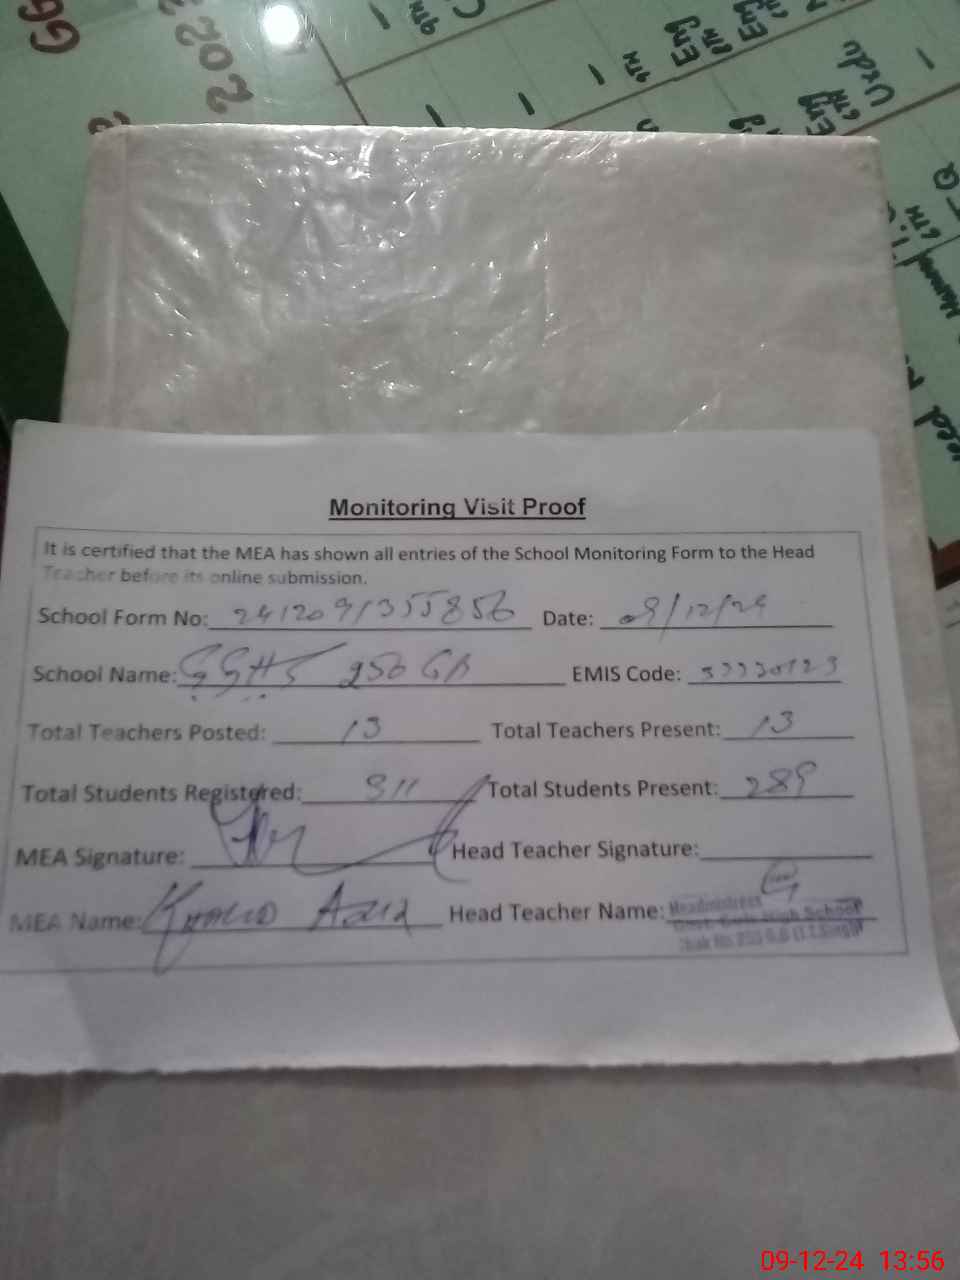 Monitoring Visit Proof
It is certified that the MEA has shown all entries of the School Monitoring Form to the Head
Teacher before its online submission.
School Form No: 2412091355856 Date: 09/12/24
School Name: GGHS 250 GB EMIS Code:
Total Teachers Posted: 13 Total Teachers Present: 13
Total Students Registered: 311 Total Students Present: 289
MEA Signature: Head Teacher Signature:
MEA Name: Khalid Aziz Head Teacher Name: Headmistress
Govt. Girls High School
Chak No. 250 G.B (T.T.Singh)
Eng
Eng
Urdu
09-12-24 13:56